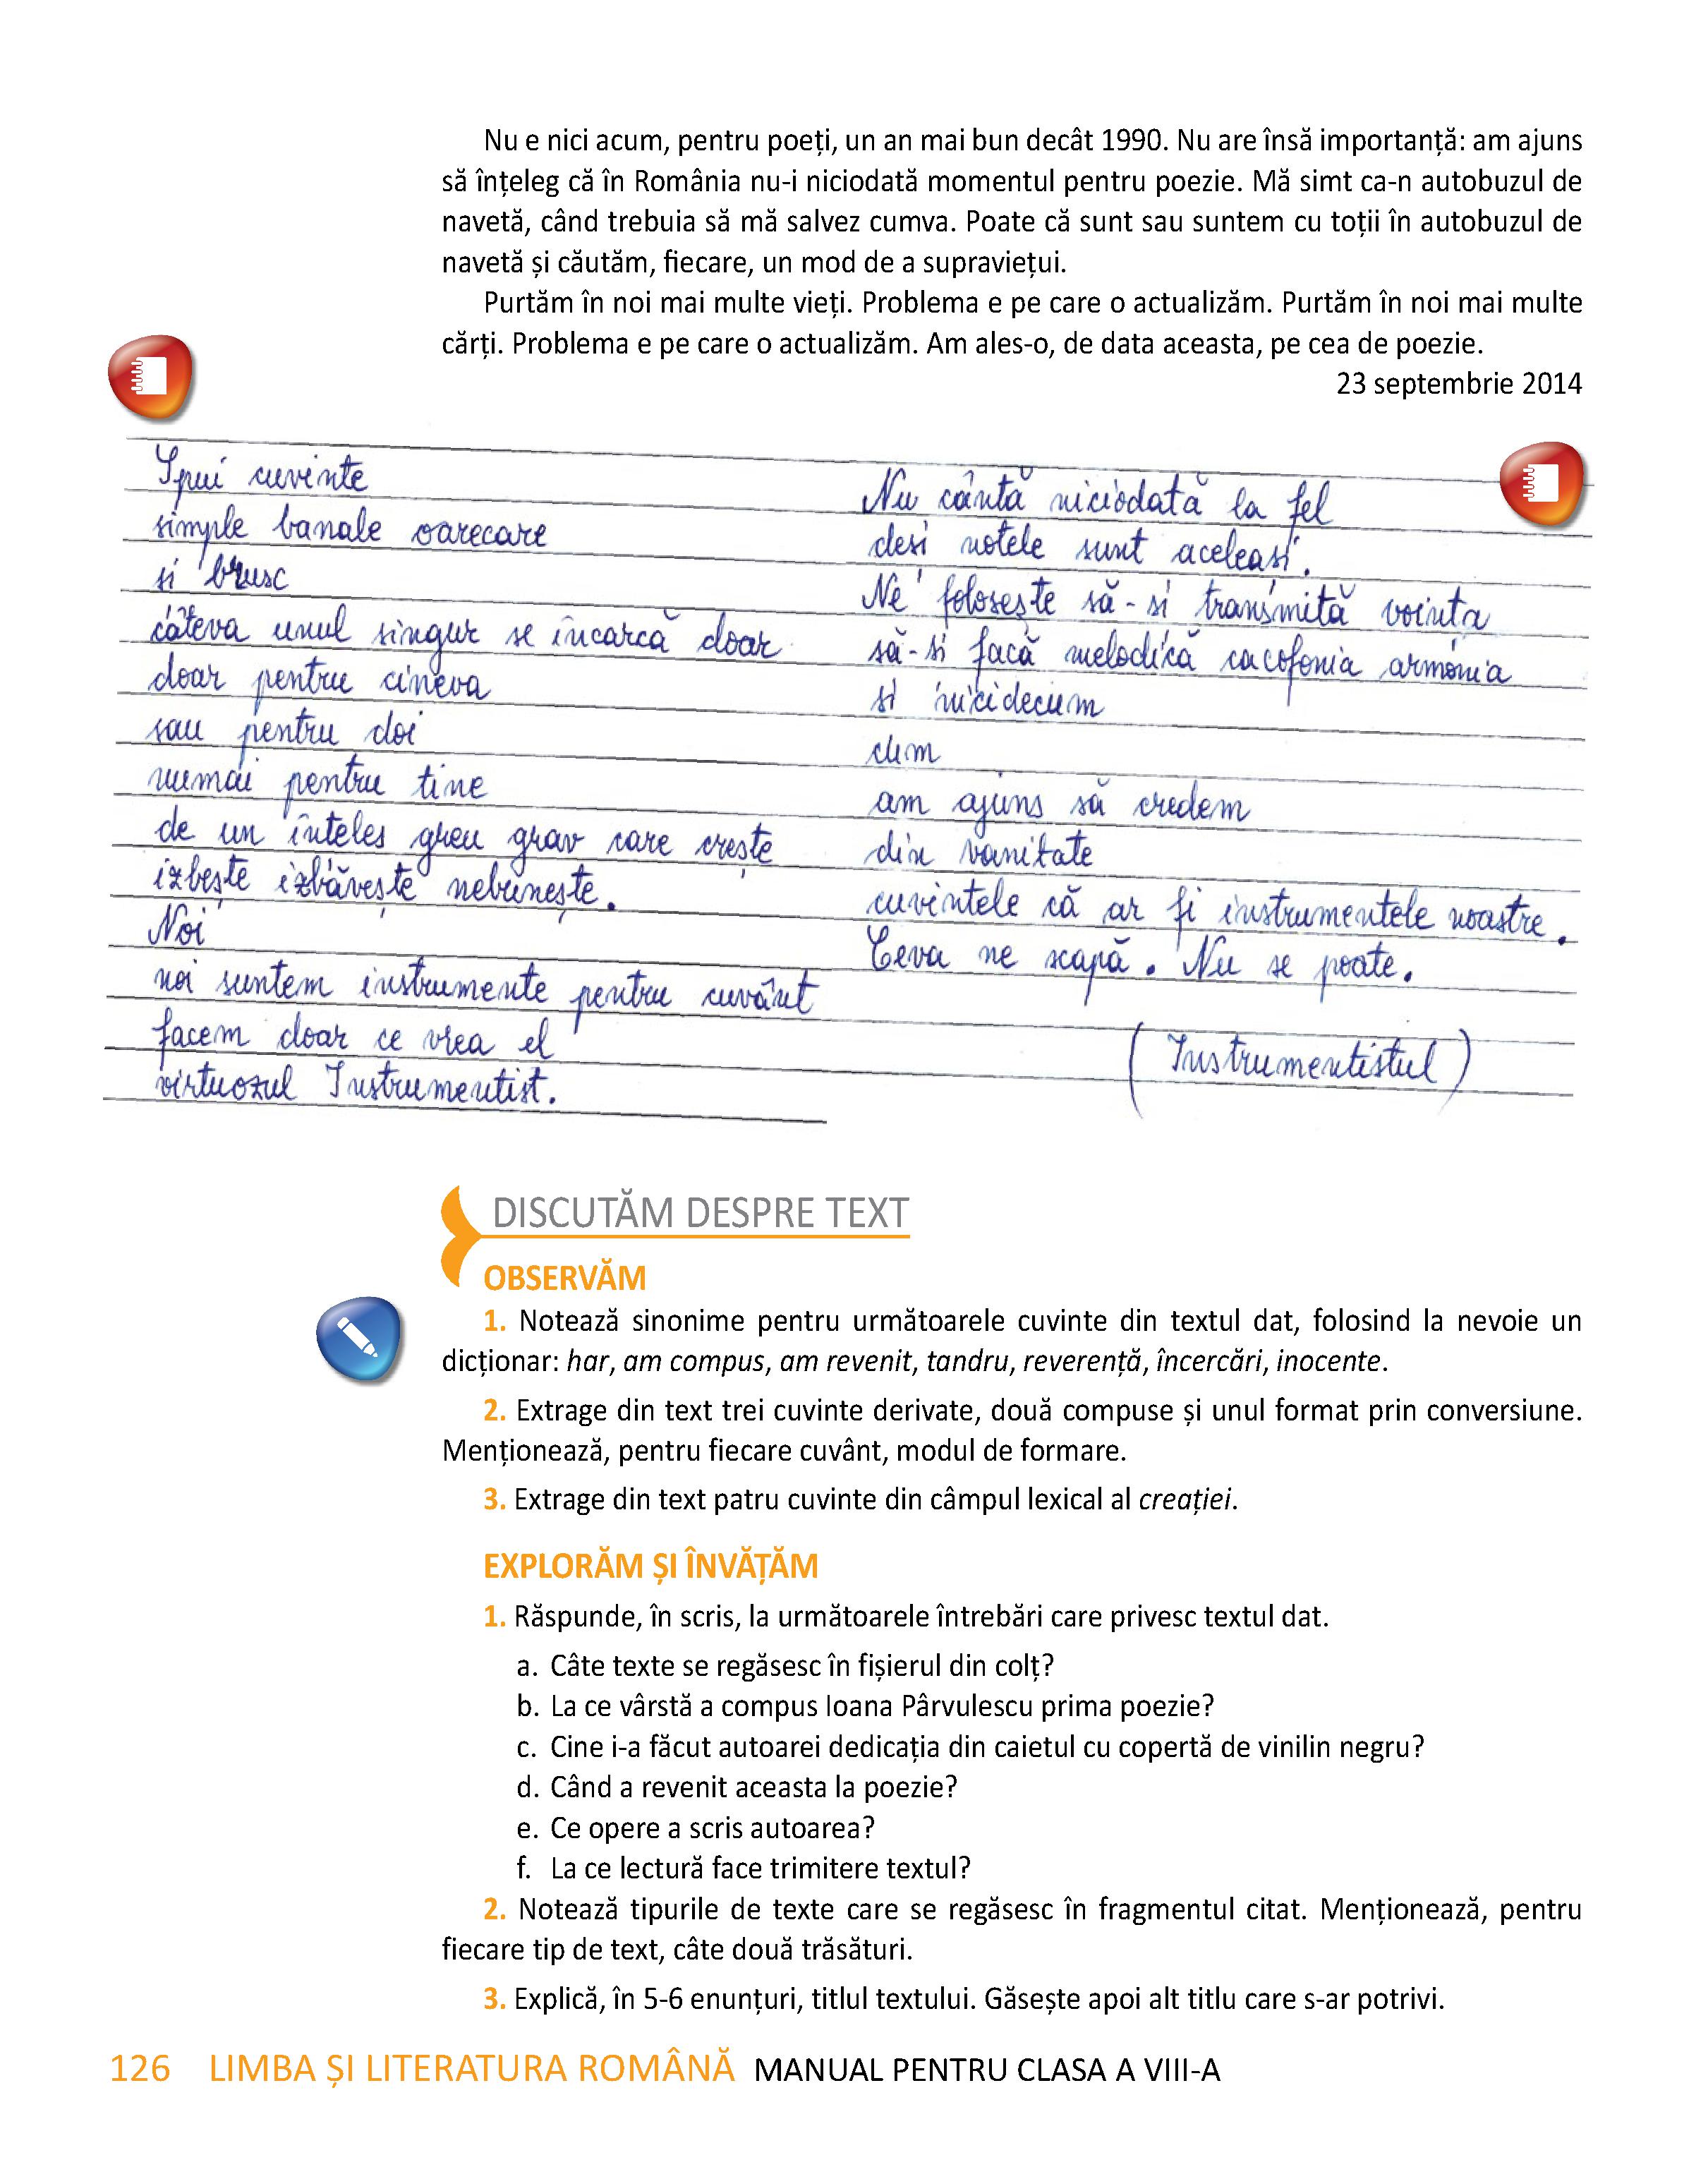 Nu e nici acum, pentru poeți, un an mai bun decât 1990. Nu are însă importanță: am ajuns
să înțeleg că în România nu-i niciodată momentul pentru poezie. Mă simt ca-n autobuzul de
navetă, când trebuia să mă salvez cumva. Poate că sunt sau suntem cu toții în autobuzul de
navetă și căutăm, fiecare, un mod de a supraviețui.
Purtăm în noi mai multe vieți. Problema e pe care o actualizăm. Purtăm în noi mai multe
cărți. Problema e pe care o actualizăm. Am ales-o, de data aceasta, pe cea de poezie.
23 septembrie 2014
Spui cuvinte
simple banale oarecare
si brusc
câteva unul singur se încarcă doar
doar pentru cineva
sau pentru doi
numai pentru tine
de un înteles greu grav care crește
izbește izbăvește nebunește.
Noi
noi suntem instrumente pentru cuvânt
facem doar ce vrea el
virtuozul Instrumentist.
Nu cântă niciodată la fel
desi notele sunt aceleasi.
Ne folosește să-si transmită vointa
să-si facă melodică cacofonia armonia
si nicidecum
cum
am ajuns să credem
din vanitate
cuvintele că ar fi instrumentele noastre.
Ceva ne scapă. Nu se poate.
(Instrumentistul)
DISCUTĂM DESPRE TEXT
OBSERVĂM
1. Notează sinonime pentru următoarele cuvinte din textul dat, folosind la nevoie un
dicționar: har, am compus, am revenit, tandru, reverență, încercări, inocente.
2. Extrage din text trei cuvinte derivate, două compuse și unul format prin conversiune.
Menționează, pentru fiecare cuvânt, modul de formare.
3. Extrage din text patru cuvinte din câmpul lexical al creației.
EXPLORĂM ȘI ÎNVĂȚĂM
1. Răspunde, în scris, la următoarele întrebări care privesc textul dat.
a. Câte texte se regăsesc în fișierul din colț?
b. La ce vârstă a compus Ioana Pârvulescu prima poezie?
c. Cine i-a făcut autoarei dedicația din caietul cu copertă de vinilin negru?
d. Când a revenit aceasta la poezie?
e. Ce opere a scris autoarea?
f. La ce lectură face trimitere textul?
2. Notează tipurile de texte care se regăsesc în fragmentul citat. Menționează, pentru
fiecare tip de text, câte două trăsături.
3. Explică, în 5-6 enunțuri, titlul textului. Găsește apoi alt titlu care s-ar potrivi.
126 LIMBA ȘI LITERATURA ROMÂNĂ MANUAL PENTRU CLASA A VIII-A